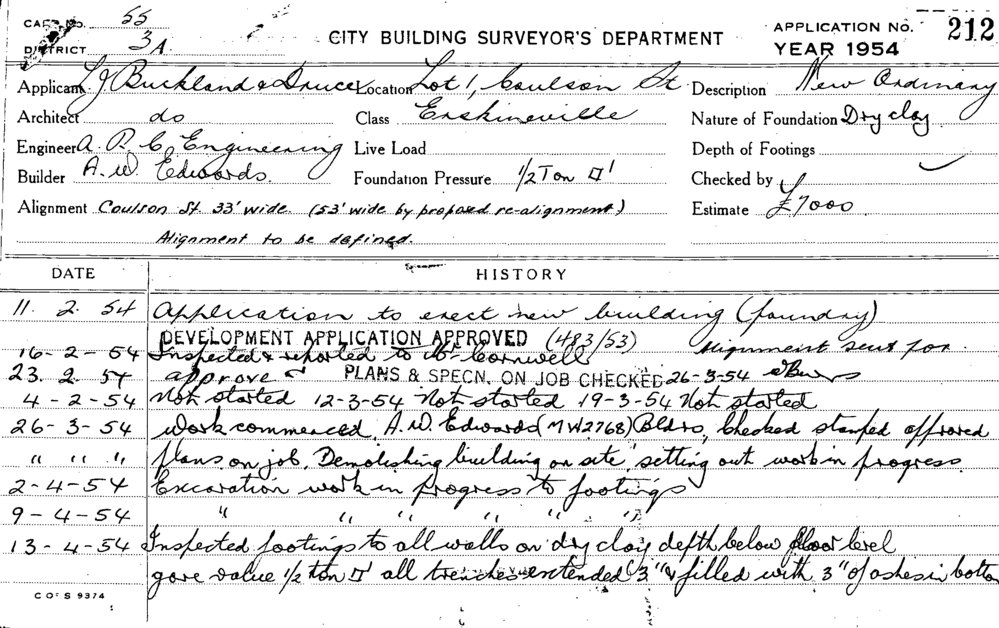 CARD NO. 55
DISTRICT 3A
CITY BUILDING SURVEYOR'S DEPARTMENT
APPLICATION NO. 212
YEAR 1954
Applicant L J Buckland & Druce Location Lot 1, Coulson St Description New Ordinary
Architect do Class Erskineville Nature of Foundation Dry clay
Engineer A. P. C. Engineering Live Load Depth of Footings
Builder A. W. Edwards. Foundation Pressure 1/2 Ton □' Checked by
Alignment Coulson St. 33' wide. (53' wide by proposed re-alignment) Estimate £7000
Alignment to be defined.
DATE HISTORY
11. 2. 54 Application to erect new building (foundry)
DEVELOPMENT APPLICATION APPROVED (483/53) Alignment sent for.
16-2-54 Inspected & reported to Mr Cornwell
23. 2. 54 approve PLANS & SPECN. ON JOB CHECKED 26-3-54
4-2-54 Not started 12-3-54 Not started 19-3-54 Not started
26-3-54 Work commenced, A. W. Edwards (MW2768) Bldrs, Checked stamped approved
" " " plans on job. Demolishing building on site, setting out work in progress.
2-4-54 Excavation work in progress to footings
9-4-54 " " " " " "
13-4-54 Inspected footings to all walls on dry clay depth below floor level
gave value 1/2 ton □' all trenches extended 3" & filled with 3" of ashes in bottom
C OF S 9374